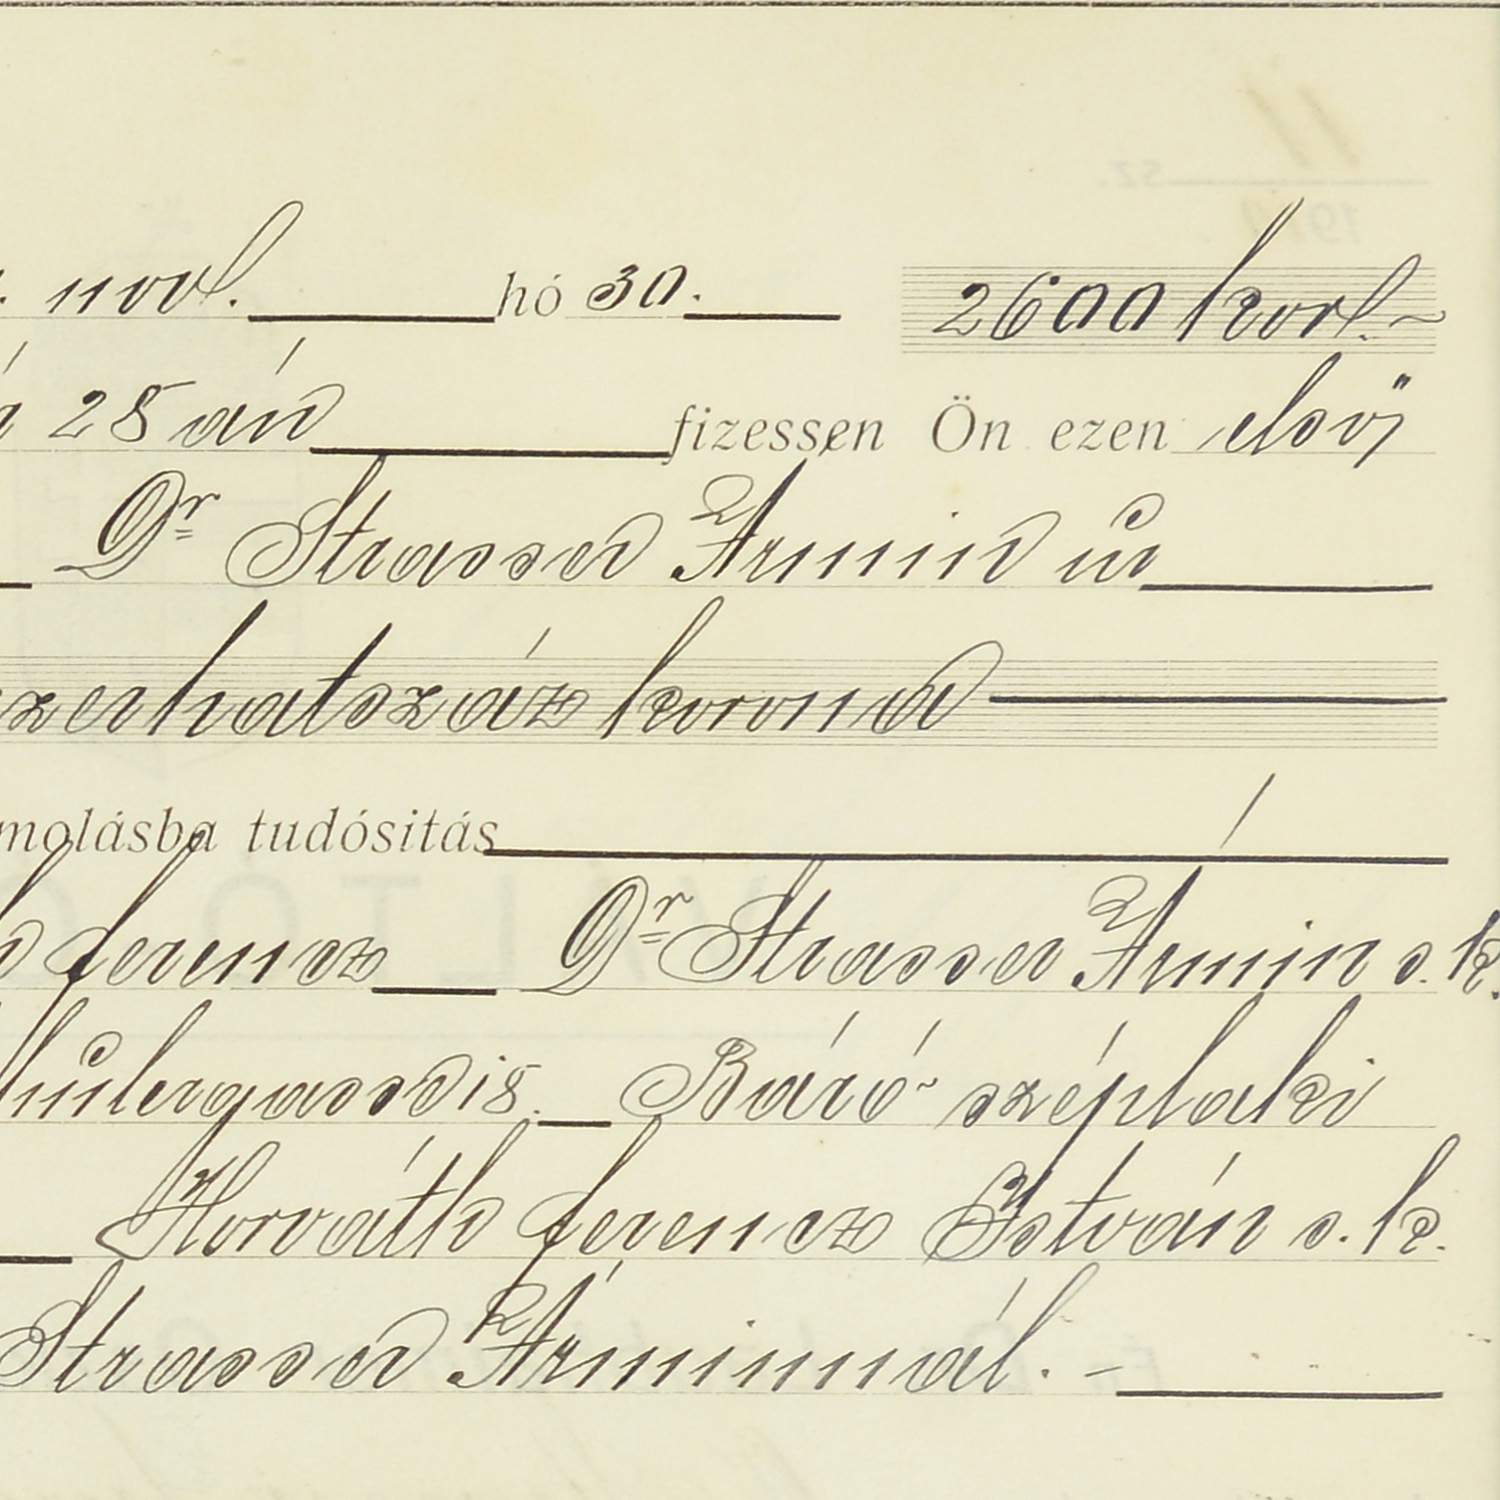 novb. hó 30. 2600 kor
28 án fizessen Ön ezen első
Dr Strasser Ármin úr
zerhatszáz korona
molásba tudósitás
ferencz Dr Strasser Ármin s. k.
18. Báró széplaki
Horváth ferencz István s. k.
Strasser Árminnál. -